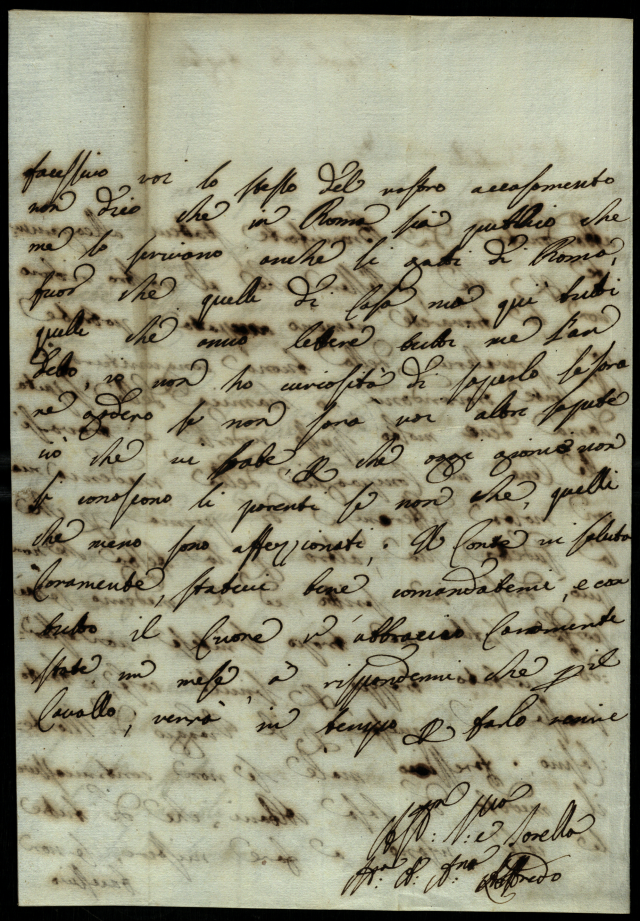 facessivo voi lo stesso del vostro accasamento
non dico che in Roma sia publico che
me lo scrivano anche li gatti di Roma,
fuor che quelli di Casa mà qui tutti
quelli che anno lettere tutti me l'an
detto, io non ho curiosità di saperlo
ne se non sarà voi altri
ciò che vi fate, che oggi giorno non
si conoscono li parenti se non che, quelli
che meno sono affezzionati, Il Conte vi saluta
Caramente, statevi bene comandatemi, e con
tutto il Cuore v'abbraccio Caramente
state un mese à rispondermi che p il
Cavallo, verrà in tempo p farlo venire
Sorella